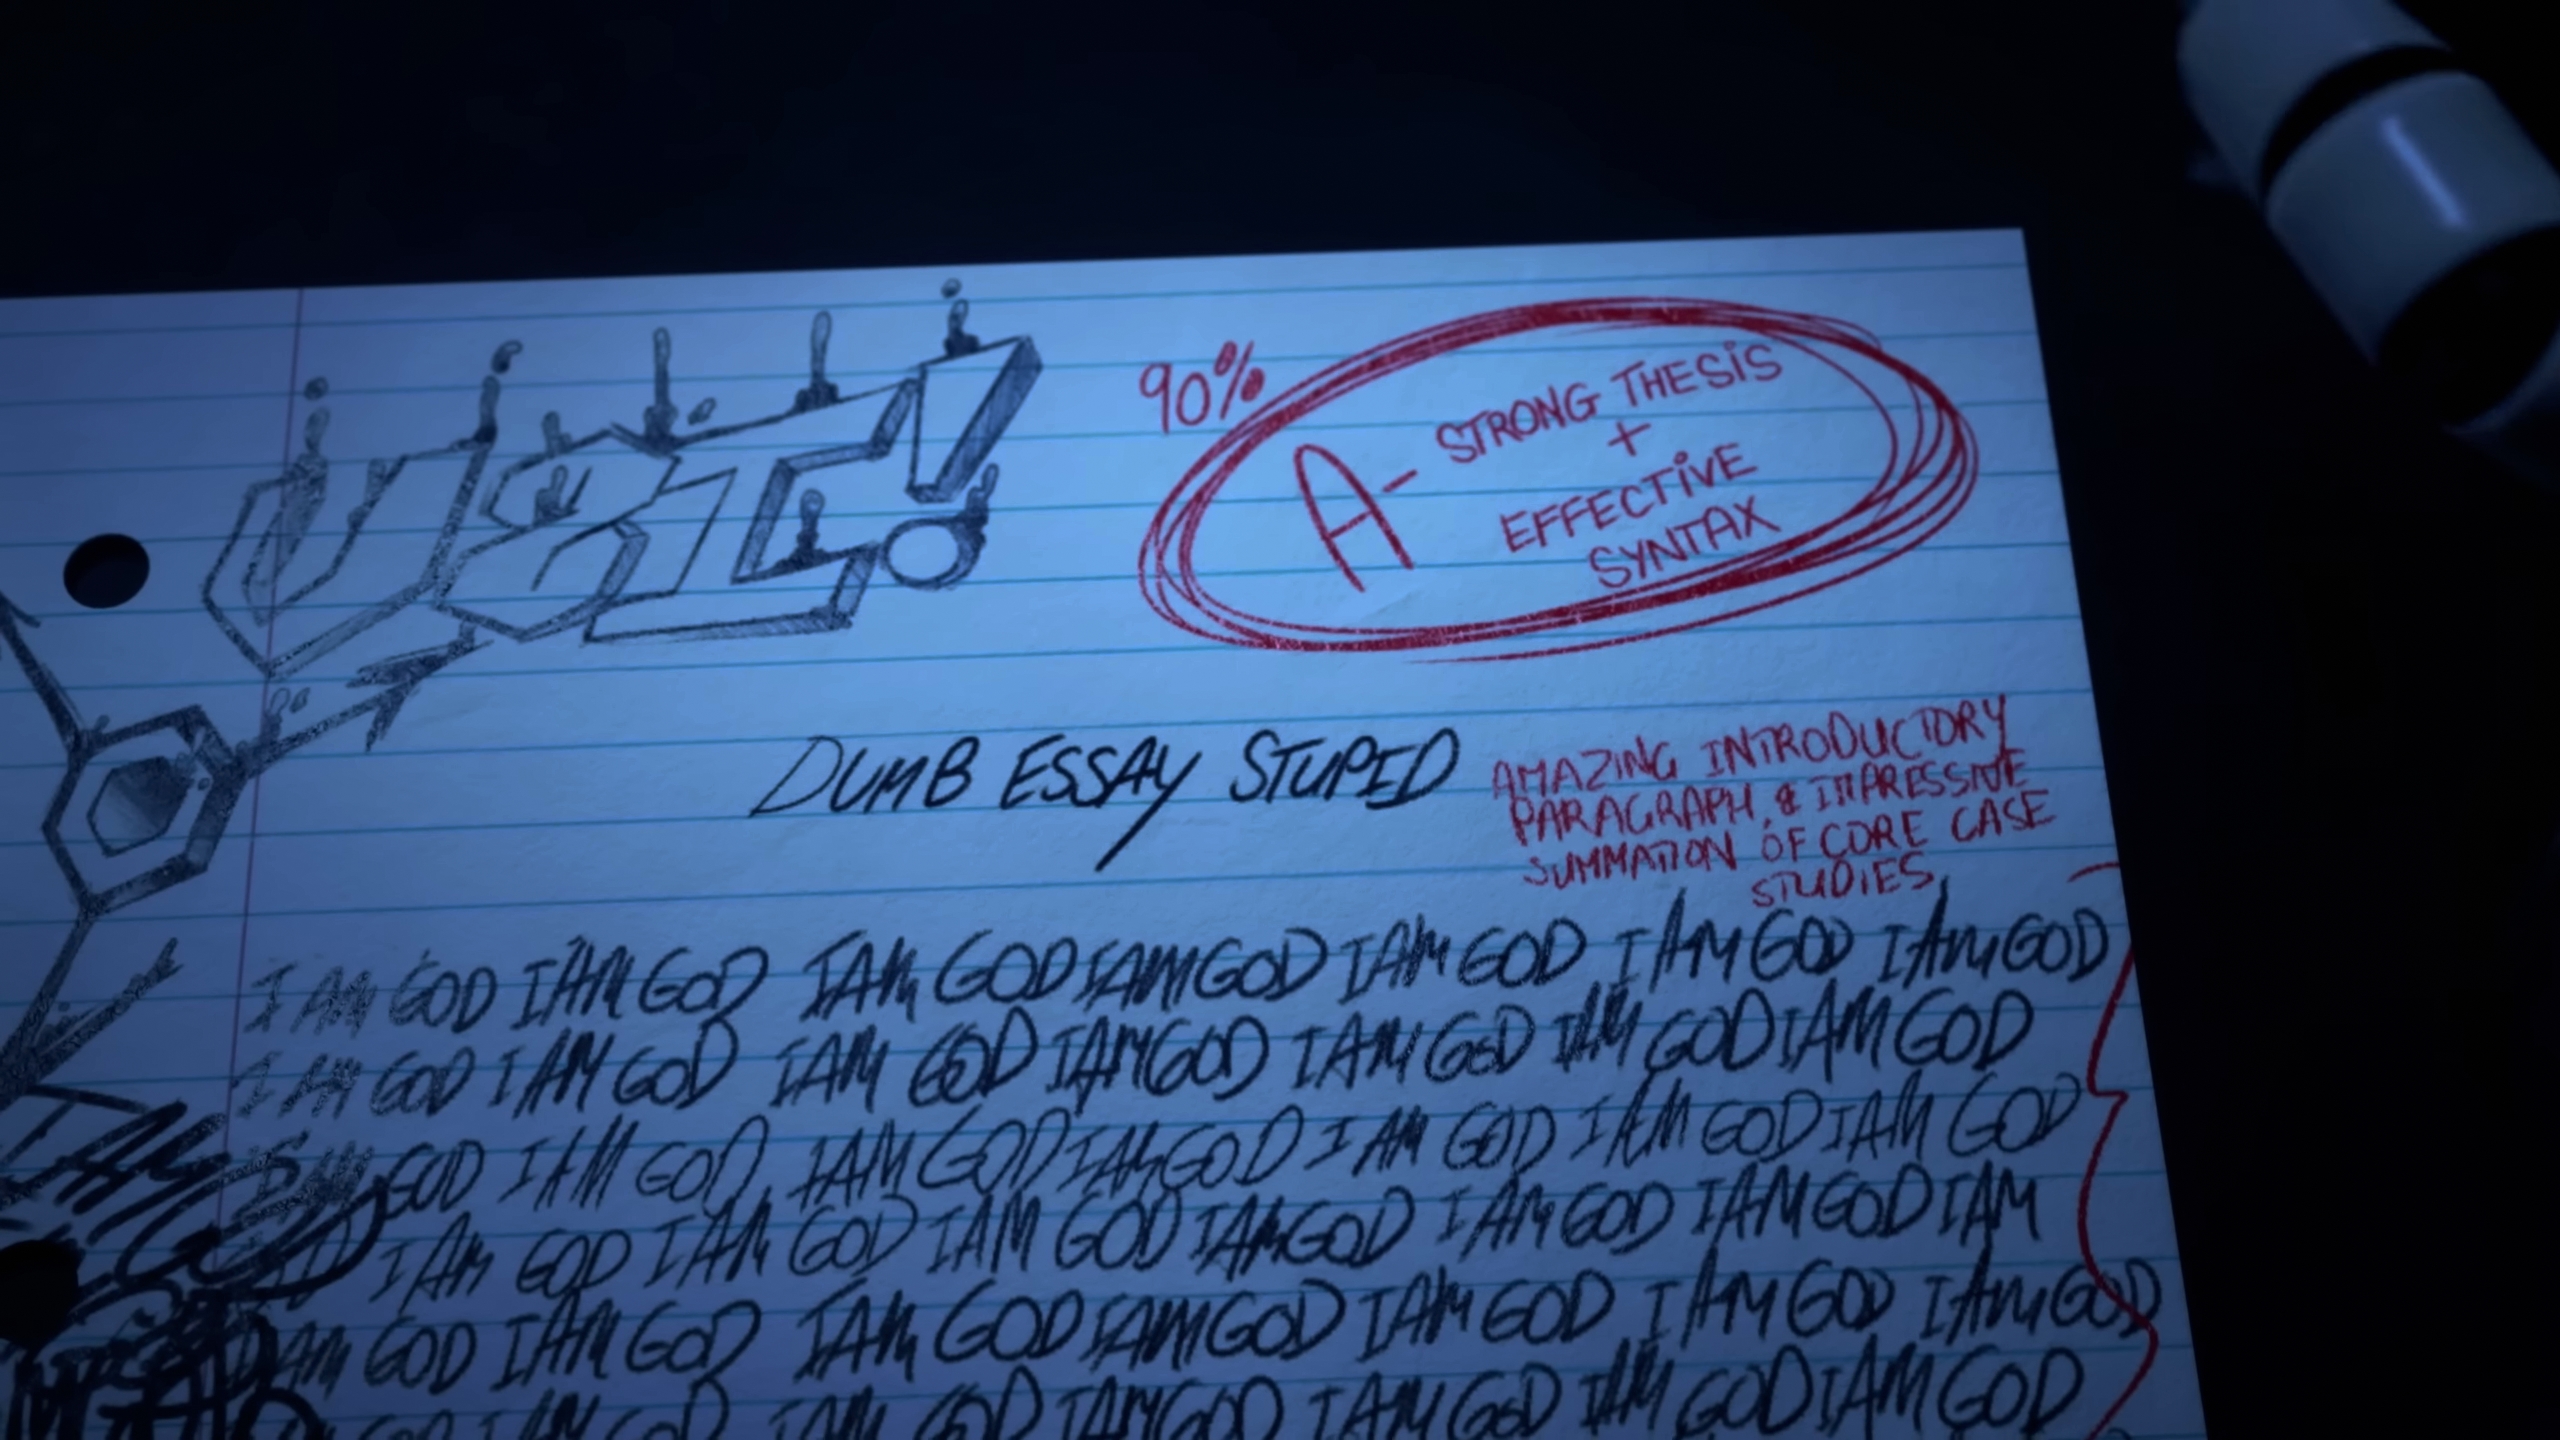 UZI!
90%
A- STRONG THESIS
+
EFFECTIVE
SYNTAX
DUMB ESSAY STUPID
AMAZING INTRODUCTORY
PARAGRAPH, & IMPRESSIVE
SUMMATION OF CORE CASE
STUDIES
I AM GOD I AM GOD I AM GOD I AM GOD I AM GOD I AM GOD I AM GOD
I AM GOD I AM GOD I AM GOD I AM GOD I AM GOD I AM GOD I AM GOD
I AM GOD I AM GOD I AM GOD I AM GOD I AM GOD I AM GOD I AM GOD
I AM GOD I AM GOD I AM GOD I AM GOD I AM GOD I AM GOD I AM
I AM GOD I AM GOD I AM GOD I AM GOD I AM GOD I AM GOD I AM GOD
GOD I AM GOD I AM GOD I AM GOD I AM GOD I AM GOD I AM GOD